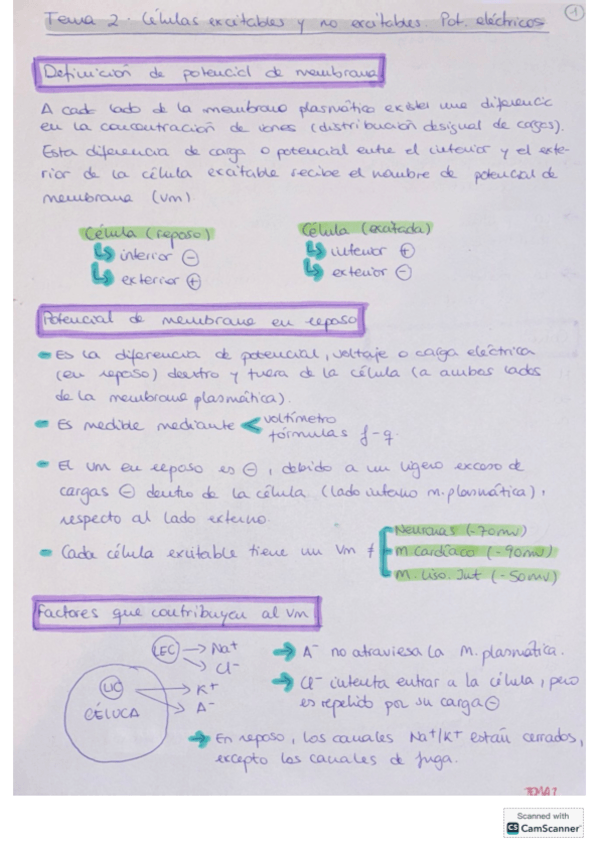 1
Tema 2. Células excitables y no excitables. Pot. eléctricos
Definición de potencial de membrana
A cada lado de la membrana plasmática existe una diferencia
en la concentración de iones (distribución desigual de cargas).
Esta diferencia de carga o potencial entre el interior y el exte-
rior de la célula excitable recibe el nombre de potencial de
membrana (Vm)
Célula (reposo)
interior ⊖
exterior ⊕
Célula (excitada)
interior ⊕
exterior ⊖
Potencial de membrana en reposo
- Es la diferencia de potencial, voltaje o carga eléctrica
(en reposo) dentro y fuera de la célula (a ambos lados
de la membrana plasmática).
- Es medible mediante < voltímetro
fórmulas f-q.
- El Vm en reposo es ⊖, debido a un ligero exceso de
cargas ⊖ dentro de la célula (lado interno m.plasmática),
respecto al lado externo.
- Cada célula excitable tiene un Vm ≠
Neuronas (-70mv)
M. Cardíaco (-90mv)
M. Liso. Int (-50mv)
Factores que contribuyen al Vm
LEC → Na+
→ Cl-
LIC → K+
→ A-
CÉLULA
→ A- no atraviesa la M. plasmática.
→ Cl- intenta entrar a la célula, pero
es repelido por su carga ⊖
→ En reposo, los canales Na+/K+ están cerrados,
excepto los canales de fuga.
Scanned with
CS CamScanner